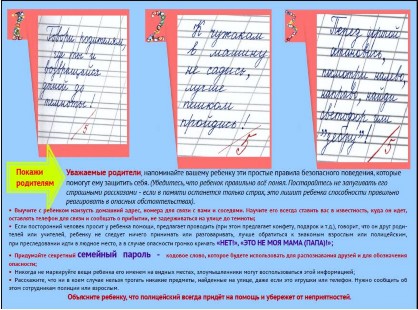 Говори родителям,
где ты и
возвращайся
домой до
темноты!
5
К чужакам
в машину
не садись,
лучше
пешком
пройдись!
5
Перед дорогой
остановись,
посмотри налево,
направо, найди
светофор или
"зебру"!
5
Покажи
родителям
Уважаемые родители, напоминайте вашему ребенку эти простые правила безопасного поведения, которые
помогут ему защитить себя. (Убедитесь, что ребенок правильно всё понял. Постарайтесь не запугивать его
страшными рассказами - если в памяти останется только страх, это лишит ребенка способности правильно
реагировать в опасных обстоятельствах).
• Выучите с ребенком наизусть домашний адрес, номера для связи с вами и соседями. Научите его всегда ставить вас в известность, куда он идет,
оставлять телефон для связи и сообщать о прибытии, не задерживаться на улице до темноты;
• Если посторонний человек просит у ребенка помощи, предлагает проводить (при этом предлагает конфету, подарок и т.д.), говорит, что он друг роди-
телей или учителей, ребенку не следует ничего принимать или разговаривать, лучше обратиться к знакомым взрослым или полицейским,
при преследовании идти в людное место, а в случае опасности громко кричать «НЕТ!», «ЭТО НЕ МОЯ МАМА (ПАПА)!»;
• Придумайте секретный семейный пароль - кодовое слово, которое будете использовать для распознавания друзей и для обозначения
опасности;
• Никогда не маркируйте вещи ребенка его именем на видных местах, злоумышленники могут воспользоваться этой информацией;
• Расскажите, что ни в коем случае нельзя трогать никакие предметы, найденные на улице, даже если это игрушки или телефон. Нужно сообщить об
этом сотрудникам полиции или взрослым.
Объясните ребенку, что полицейский всегда придёт на помощь и убережет от неприятностей.